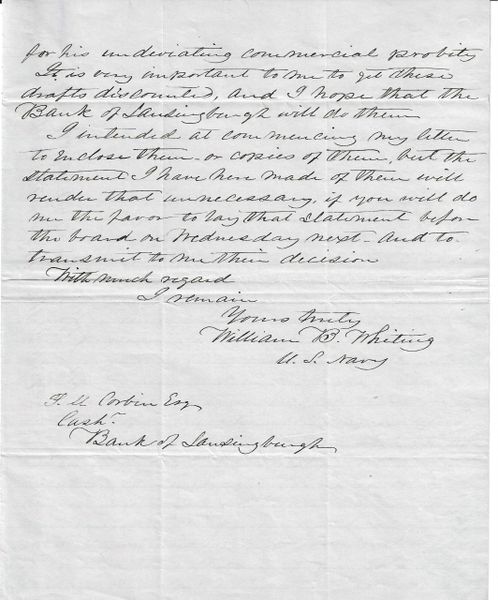 for his undeviating commercial probity
It is very important to me to get these
drafts discounted, and I hope that the
Bank of Lansingburgh will do them
I intended at commencing my letter
to enclose them or copies of them, but the
statement I have here made of them will
render that unnecessary, if you will do
me the favor to lay that statement before
the board on Wednesday next - and to
transmit to me their decision
With much regard
I remain
Yours truly
William B. Whiting
U. S. Navy
F U Corbin Esq
Cashr
Bank of Lansingburgh